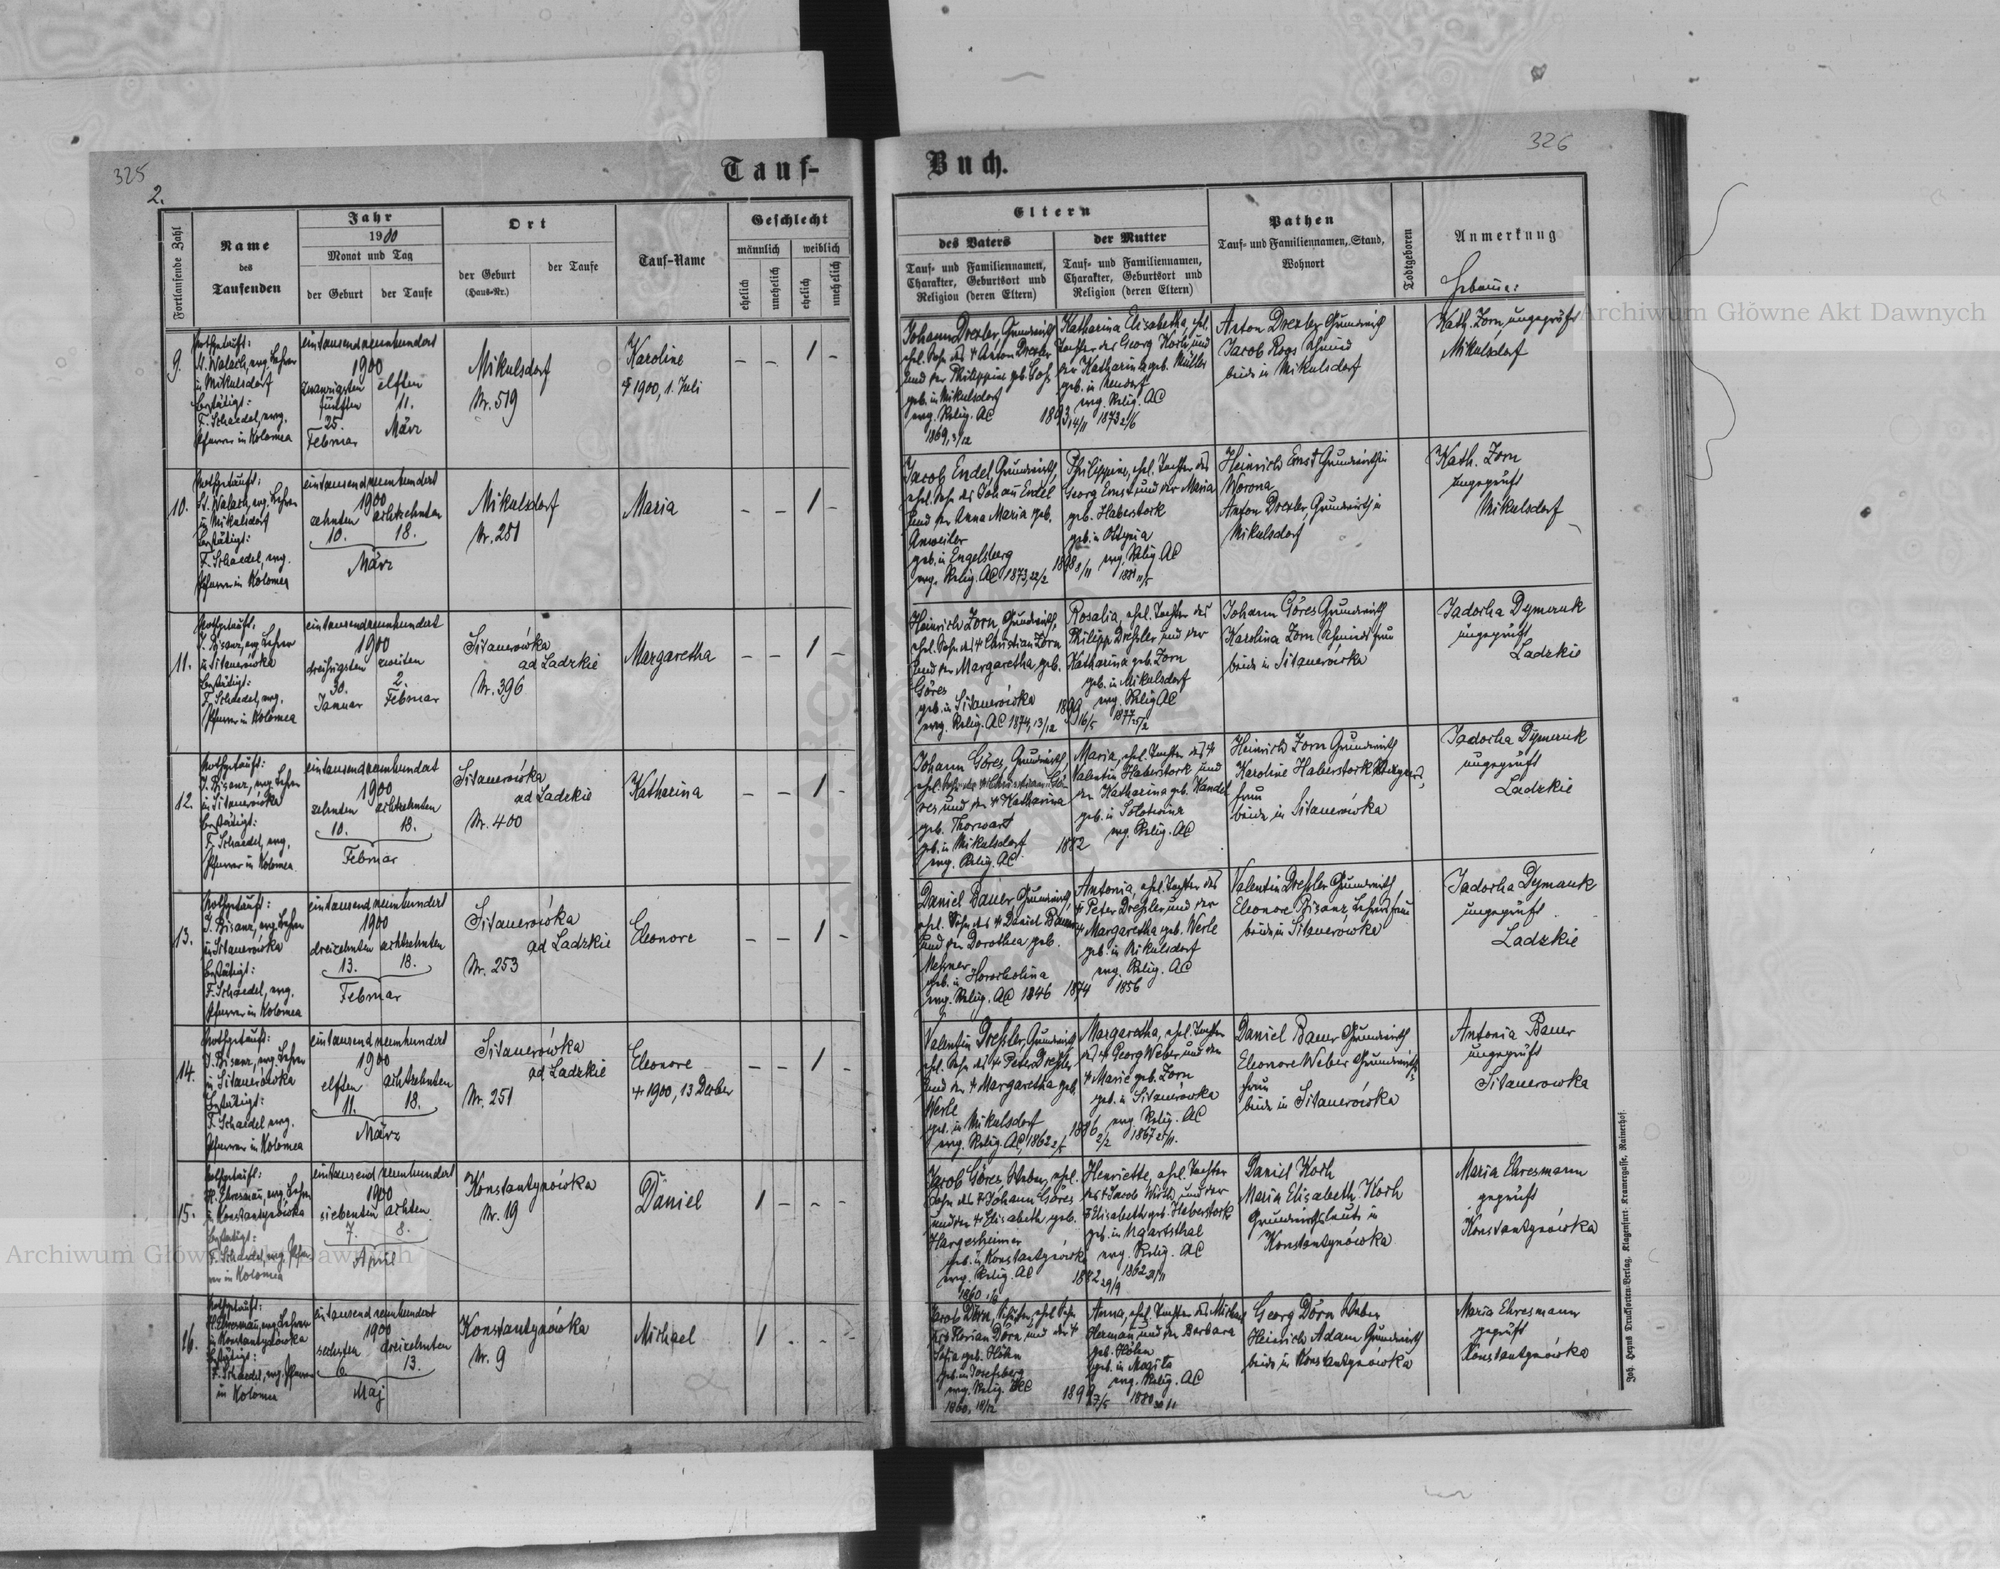 325
326
2.
Tauf-
Buch.
Fortlaufende Zahl
Name
des
Taufenden
Jahr
1900
Monat und Tag
der Geburt
der Taufe
Ort
der Geburt
(Haus-Nr.)
der Taufe
Tauf-Name
Geschlecht
männlich
weiblich
ehelich
unehelich
ehelich
unehelich
Eltern
des Vaters
Tauf- und Familiennamen,
Charakter, Geburtsort und
Religion (deren Eltern)
der Mutter
Tauf- und Familiennamen,
Charakter, Geburtsort und
Religion (deren Eltern)
Pathen
Tauf- und Familiennamen, Stand,
Wohnort
Todtgeboren
Anmerkung
9.
Nothgetauft:
in Mikulsdorf
Bestätigt:
F. Schaedel, evg.
Pfarrer in Kolomea
eintausendneunhundert
1900
zwanzigsten
fünften
25.
Februar
elften
11.
März
Mikulsdorf
Nr. 519
Karoline
1900, 1. Juli
– – 1 –
Johann Drexler, Grundwirth
ehel. Sohn des † Anton Drexler
und der Philippine geb.
geb. in Mikulsdorf
evg. Relig. AC
Katharina Elisabetha, ehel.
Tochter des Georg Koch und
der Katharina geb. Müller
geb. in
evg. Relig. AC
Anton Drexler Grundwirth
Jacob Roos Schmied
beide in Mikulsdorf
Kath. Zorn, ungeprüft
Mikulsdorf
10.
Nothgetauft:
in Mikulsdorf
Bestätigt:
F. Schaedel, evg.
Pfarrer in Kolomea
eintausendneunhundert
1900
zehnten achtzehnten
10. 18.
März
Mikulsdorf
Nr. 251
Maria
– – 1 –
Jacob Endel, Grundwirth,
ehel. Sohn des Johann Endel
und der Anna Maria geb.
Anweiler
geb. in Engelsberg
evg. Relig. AC 1873, 22/2
Philippine, ehel. Tochter des
Georg Ernst und der Maria
geb. Haberstock
geb. in Ottynia
evg. Relig. AC
Heinrich Ernst Grundwirth in
Worona
Anton Drexler Grundwirth in
Mikulsdorf
Kath. Zorn
ungeprüft
Mikulsdorf
11.
Nothgetauft:
J. Bisanz, evg. Lehrer
in Sitanerówka
Bestätigt:
F. Schaedel, evg.
Pfarrer in Kolomea
eintausendneunhundert
1900
dreißigsten zweiten
30. 2.
Januar Februar
Sitanerówka
ad Ladzkie
Nr. 396
Margaretha
– – 1 –
Heinrich Zorn Grundwirth,
ehel. Sohn des † Christian Zorn
und der Margaretha geb.
Göres
geb. in Sitanerówka
evg. Relig. AC 1874, 13/12
Rosalia, ehel. Tochter des
Philipp Dreßler und der
Katharina geb. Zorn
geb. in Mikulsdorf
evg. Relig AC
Johann Göres Grundwirth
Karolina Zorn Schmiedsfrau
beide in Sitanerówka
Jadocha Dymczuk
ungeprüft
Ladzkie
12.
Nothgetauft:
J. Bisanz, evg. Lehrer
in Sitanerówka
Bestätigt:
F. Schaedel, evg.
Pfarrer in Kolomea
eintausendneunhundert
1900
zehnten achtzehnten
10. 18.
Februar
Sitanerówka
ad Ladzkie
Nr. 400
Katharina
– – 1 –
Johann Göres, Grundwirth,
ehel. Sohn des † Christian Gö-
res und der † Katharina
geb. Thorwart
geb. in Mikulsdorf
evg. Relig. AC
Maria, ehel. Tochter des †
Valentin Haberstock und
der Katharina geb. Kandel
geb. in Solotwina
evg. Relig. AC
1882
Heinrich Zorn Grundwirth
Karoline Haberstock
frau
beide in Sitanerówka
Jadocha Dymczuk
ungeprüft
Ladzkie
13.
Nothgetauft:
J. Bisanz, evg. Lehrer
in Sitanerówka
Bestätigt:
F. Schaedel, evg.
Pfarrer in Kolomea
eintausendneunhundert
1900
dreizehnten achtzehnten
13. 18.
Februar
Sitanerówka
ad Ladzkie
Nr. 253
Eleonore
– – 1 –
Daniel Bauer Grundwirth,
ehel. Sohn des † Daniel Bauer
und der Dorothea geb.
Metzner
geb. in Horocholina
evg. Relig. AC 1846
Antonia, ehel. Tochter des
† Peter Dreßler und der
† Margaretha geb. Werle
geb. in Mikulsdorf
evg. Relig. AC
1874 1856
Valentin Dreßler Grundwirth
Eleonore Bisanz Lehrersfrau
beide in Sitanerówka
Jadocha Dymczuk
ungeprüft
Ladzkie
14.
Nothgetauft:
J. Bisanz, evg. Lehrer
in Sitanerówka
Bestätigt:
F. Schaedel evg.
Pfarrer in Kolomea
eintausendneunhundert
1900
elften achtzehnten
11. 18.
März
Sitanerówka
ad Ladzkie
Nr. 251
Eleonore
† 1900, 13 Dezber
– – 1 –
Valentin Dreßler, Grundwirth
ehel. Sohn des † Peter Dreßler
und der † Margaretha geb.
Werle
geb. in Mikulsdorf
evg. Relig. AC, 1862 2/5
Margaretha, ehel. Tochter
des † Georg Weber und der
† Marie geb. Zorn
geb. in Sitanerówka
evg. Relig. AC
Daniel Bauer Grundwirth
Eleonore Weber Grundwirths-
frau
beide in Sitanerówka
Antonia Bauer
ungeprüft
Sitanerowka
15.
Nothgetauft:
H. Ehresman, evg. Lehrer
in Konstantynówka
Bestätigt:
F. Schaedel, evg. Pfar-
rer in Kolomea
eintausendneunhundert
1900
siebenten achten
7. 8.
April
Konstantynówka
Nr. 19
Daniel
1 – – –
Jacob Göres, Weber, ehel.
Sohn des † Johann Göres
und der † Elisabeth geb.
Hargesheimer
geb. in Konstantynówka
evg. Relig. AC
Henriette, ehel. Tochter
des † Jacob Wirth, und der
† Elisabeth geb. Haberstock
geb. in Ugartsthal
evg. Relig. AC
Daniel Koch
Maria Elisabeth Koch
Grundwirthsleute in
Konstantynówka
Maria Ehresmann
geprüft
Konstantynówka
16.
Nothgetauft:
H. Ehresmann, evg. Lehrer
in Konstantynówka
Bestätigt:
F. Schaedel, evg. Pfarrer
in Kolomea
eintausendneunhundert
1900
sechsten dreizehnten
6 13.
Maj
Konstantynówka
Nr. 9
Michael
1 – – –
Jacob Dörn, ehel. Sohn
des Florian Dörn und der †
Sofia geb. Höhn
geb. in Josefsberg
Anna, ehel. Tochter des Michael
Herman und der Barbara
geb. Höhn
evg. Relig. AC
Georg Dörn Weber
Heinrich Adam Grundwirth
beide in Konstantynówka
Maria Ehresmann
geprüft
Konstantynówka
Joh. Heyns Drucksorten-Verlag, Klagenfurt, Kramergasse, Rainerhof.
Archiwum Główne Akt Dawnych
Archiwum Główne Akt Dawnych